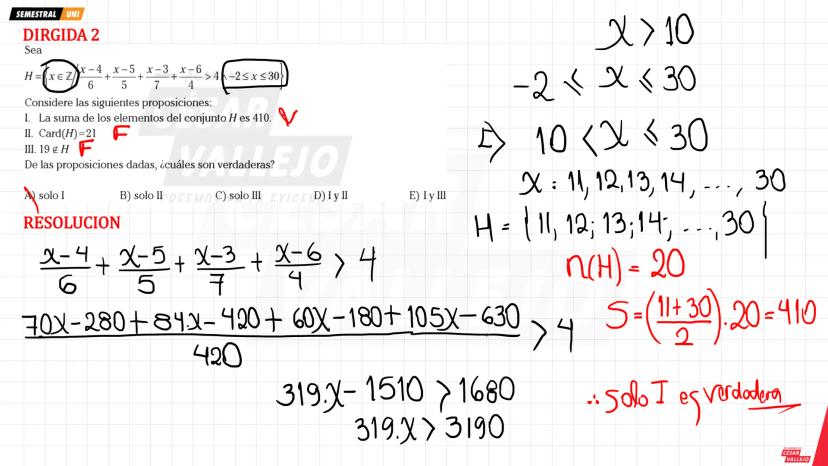 SEMESTRAL UNI
DIRGIDA 2
Sea
H = {x ∈ ℤ / (x−4)/6 + (x−5)/5 + (x−3)/7 + (x−6)/4 > 4 ∧ −2 ≤ x ≤ 30}
Considere las siguientes proposiciones:
I. La suma de los elementos del conjunto H es 410. V
II. Card(H)=21 F
III. 19 ∉ H F
De las proposiciones dadas, ¿cuáles son verdaderas?
A) solo I B) solo II C) solo III D) I y II E) I y III
RESOLUCION
(x−4)/6 + (x−5)/5 + (x−3)/7 + (x−6)/4 > 4
(70x−280+84x−420+60x−180+105x−630)/420 > 4
319.x − 1510 > 1680
319.x > 3190
x > 10
−2 ≤ x ≤ 30
⇒ 10 < x ≤ 30
x : 11, 12, 13, 14, ..., 30
H = {11, 12; 13; 14; ..., 30}
n(H) = 20
S = ((11+30)/2).20 = 410
∴ solo I es verdadera
CÉSAR
VALLEJO
CÉSAR
VALLEJO